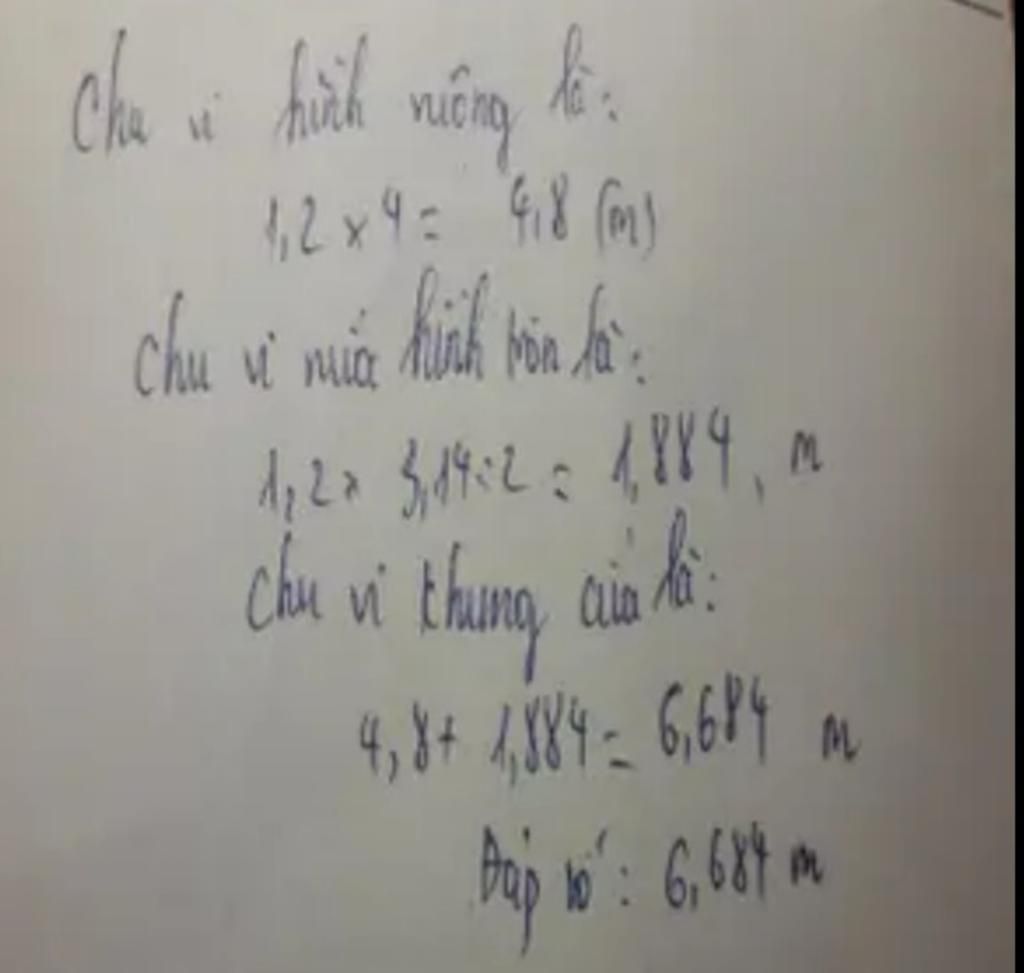 Chu vi hình vuông là:
1,2 x 4 = 4,8 (m)
Chu vi nửa hình tròn là:
1,2 x 3,14 : 2 = 1,884 m
Chu vi khung cửa là:
4,8 + 1,884 = 6,684 m
Đáp số: 6,684 m